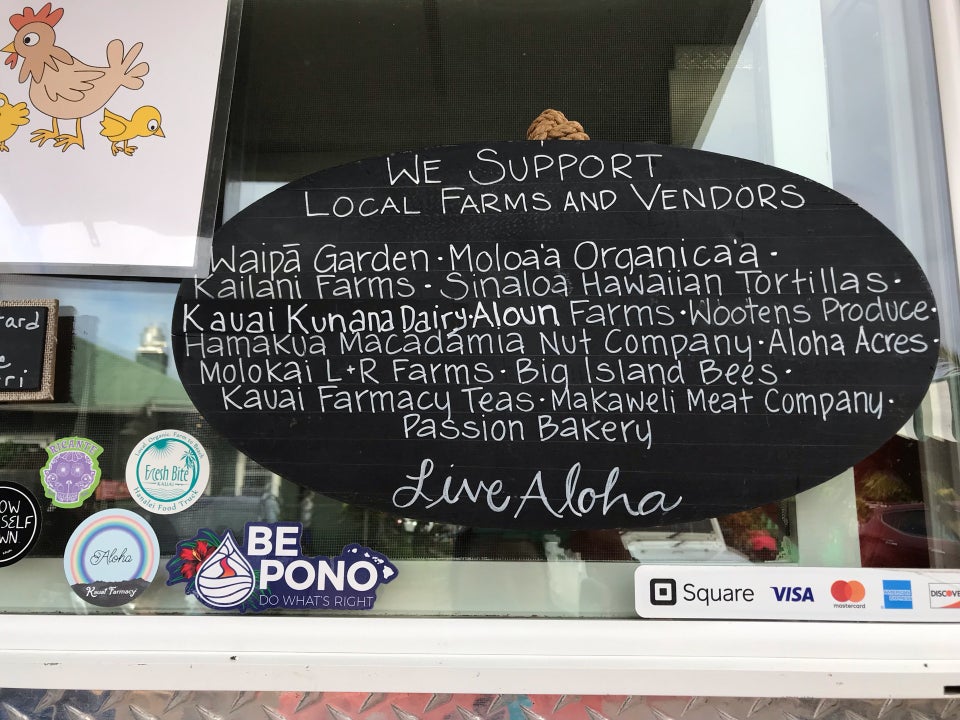 WE SUPPORT
LOCAL FARMS AND VENDORS
Waipā Garden · Moloa'a Organica'a ·
Kailani Farms · Sinaloa Hawaiian Tortillas ·
Kauai Kunana Dairy · Aloun Farms · Wootens Produce ·
Hamakua Macadamia Nut Company · Aloha Acres ·
Molokai L+R Farms · Big Island Bees ·
Kauai Farmacy Teas · Makaweli Meat Company ·
Passion Bakery
Live Aloha
RICANTE
Local, Organic, Farm to Beach
Fresh Bite
KAUAI
Hanalei Food Truck
Aloha
Kauai Farmacy
BE
PONO
DO WHAT'S RIGHT
Square VISA mastercard AMERICAN EXPRESS DISCOVE